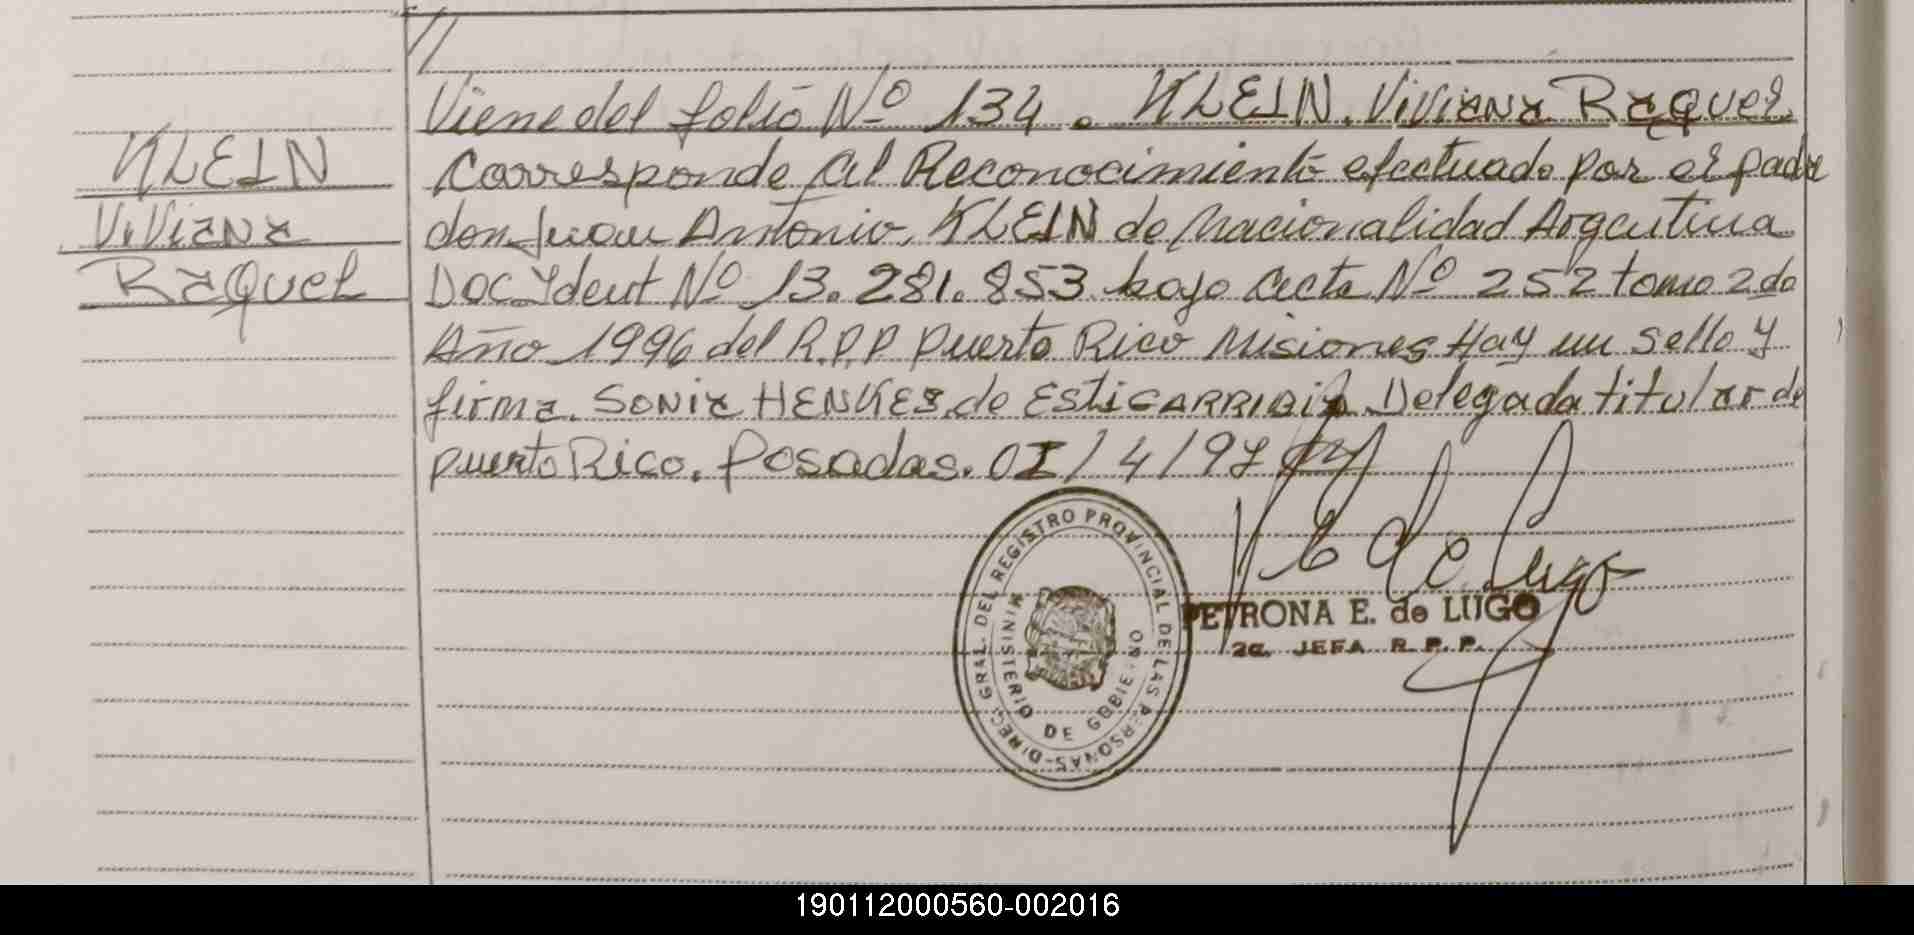 KLEIN
Viviana
Raquel
Viene del folio Nº 134. KLEIN. Viviana Raquel.
Corresponde al Reconocimiento efectuado por el padre
don Juan Antonio, KLEIN de Nacionalidad Argentina
Doc Ydent Nº 13.281.853 bajo acta Nº 252 tomo 2do
Año 1996 del R.P.P Puerto Rico Misiones Hay un sello y
firma. SONIA HENKES de ESTIGARRIBIA Delegada titular de
puerto Rico. Posadas. 01/4/97
DIRECC. GRAL. DEL REGISTRO PROVINCIAL DE LAS PERSONAS-
MINISTERIO DE GOBIERNO
de Lugo
PETRONA E. de LUGO
2a. JEFA R. P. P.
190112000560-002016